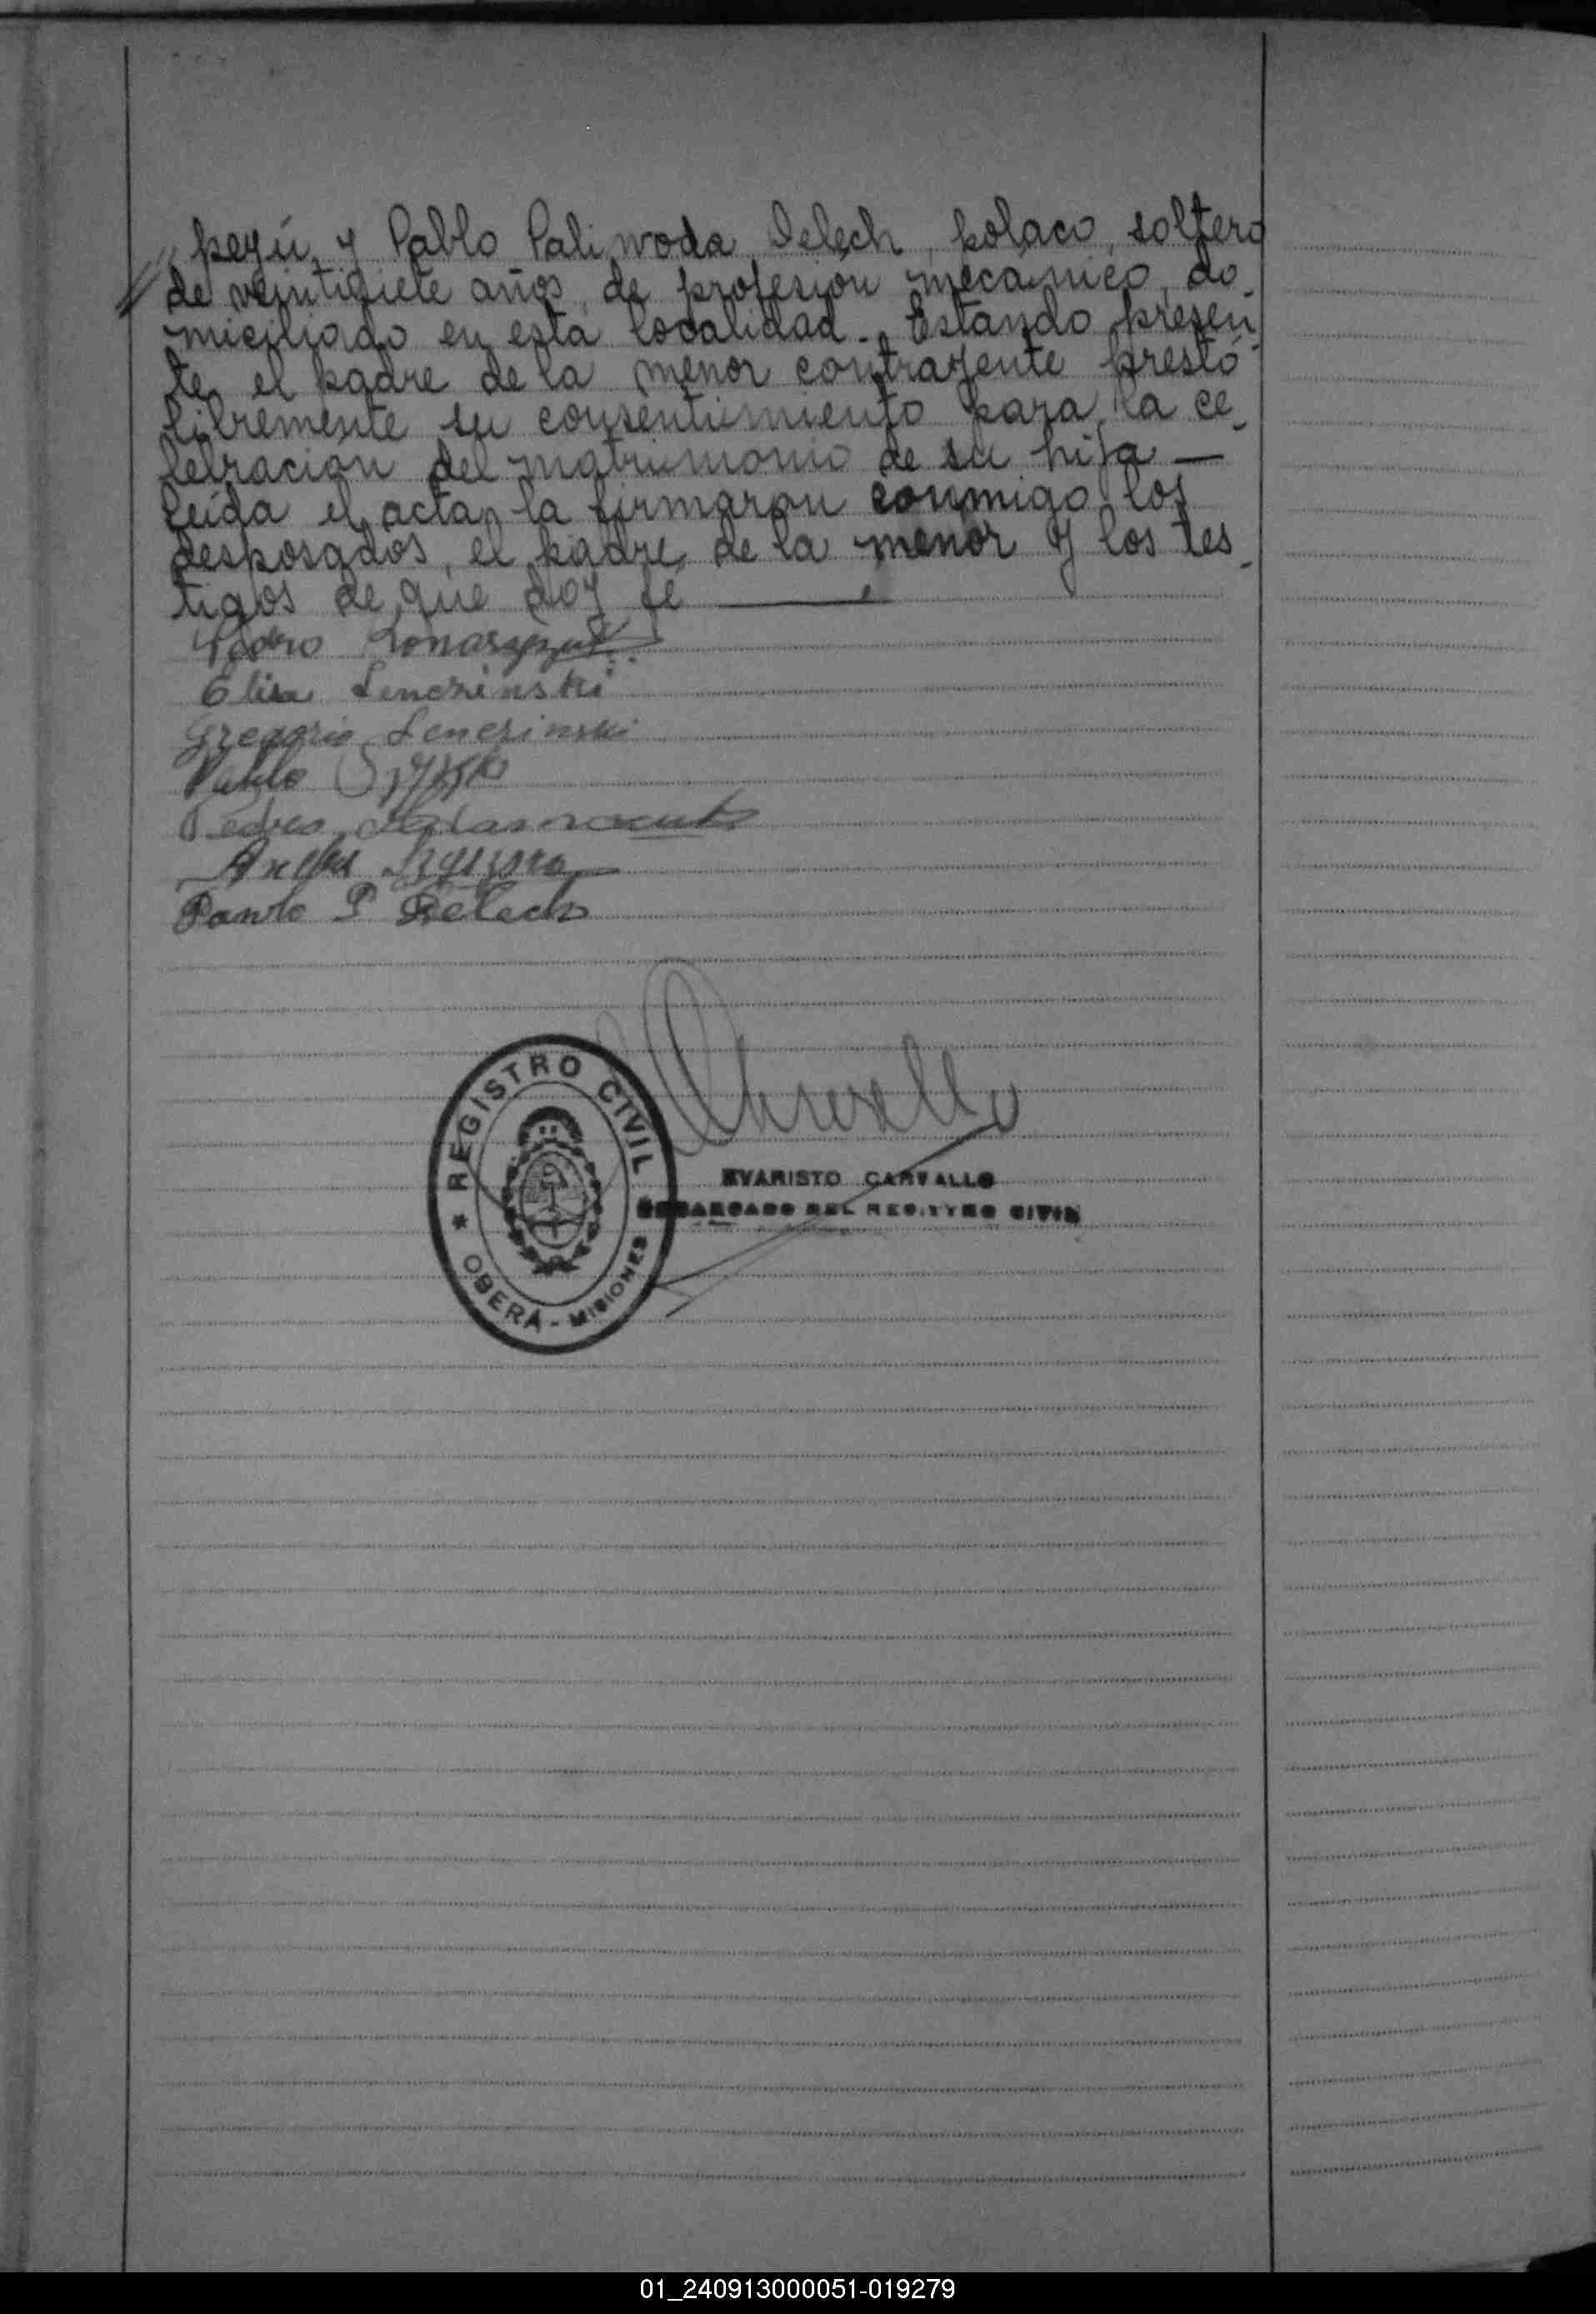 peyú, y Pablo Paliwoda Delech, polaco, soltero
de veintisiete años, de profesión mecánico, do-
miciliado en esta localidad.- Estando presen-
te el padre de la menor contrayente prestó
libremente su consentimiento para la ce-
lebración del matrimonio de su hija —
Leída el acta, la firmaron conmigo los
desposados, el padre de la menor y los tes-
tigos de que doy fé
Pedro
Elisa Senczinski
Gregorio Senczinski
Pablo
Pedro
Pawlo P Delech
REGISTRO CIVIL
OBERÁ - MISIONES
EVARISTO CARVALLO
ENCARGADO DEL REGISTRO CIVIL
01_240913000051-019279